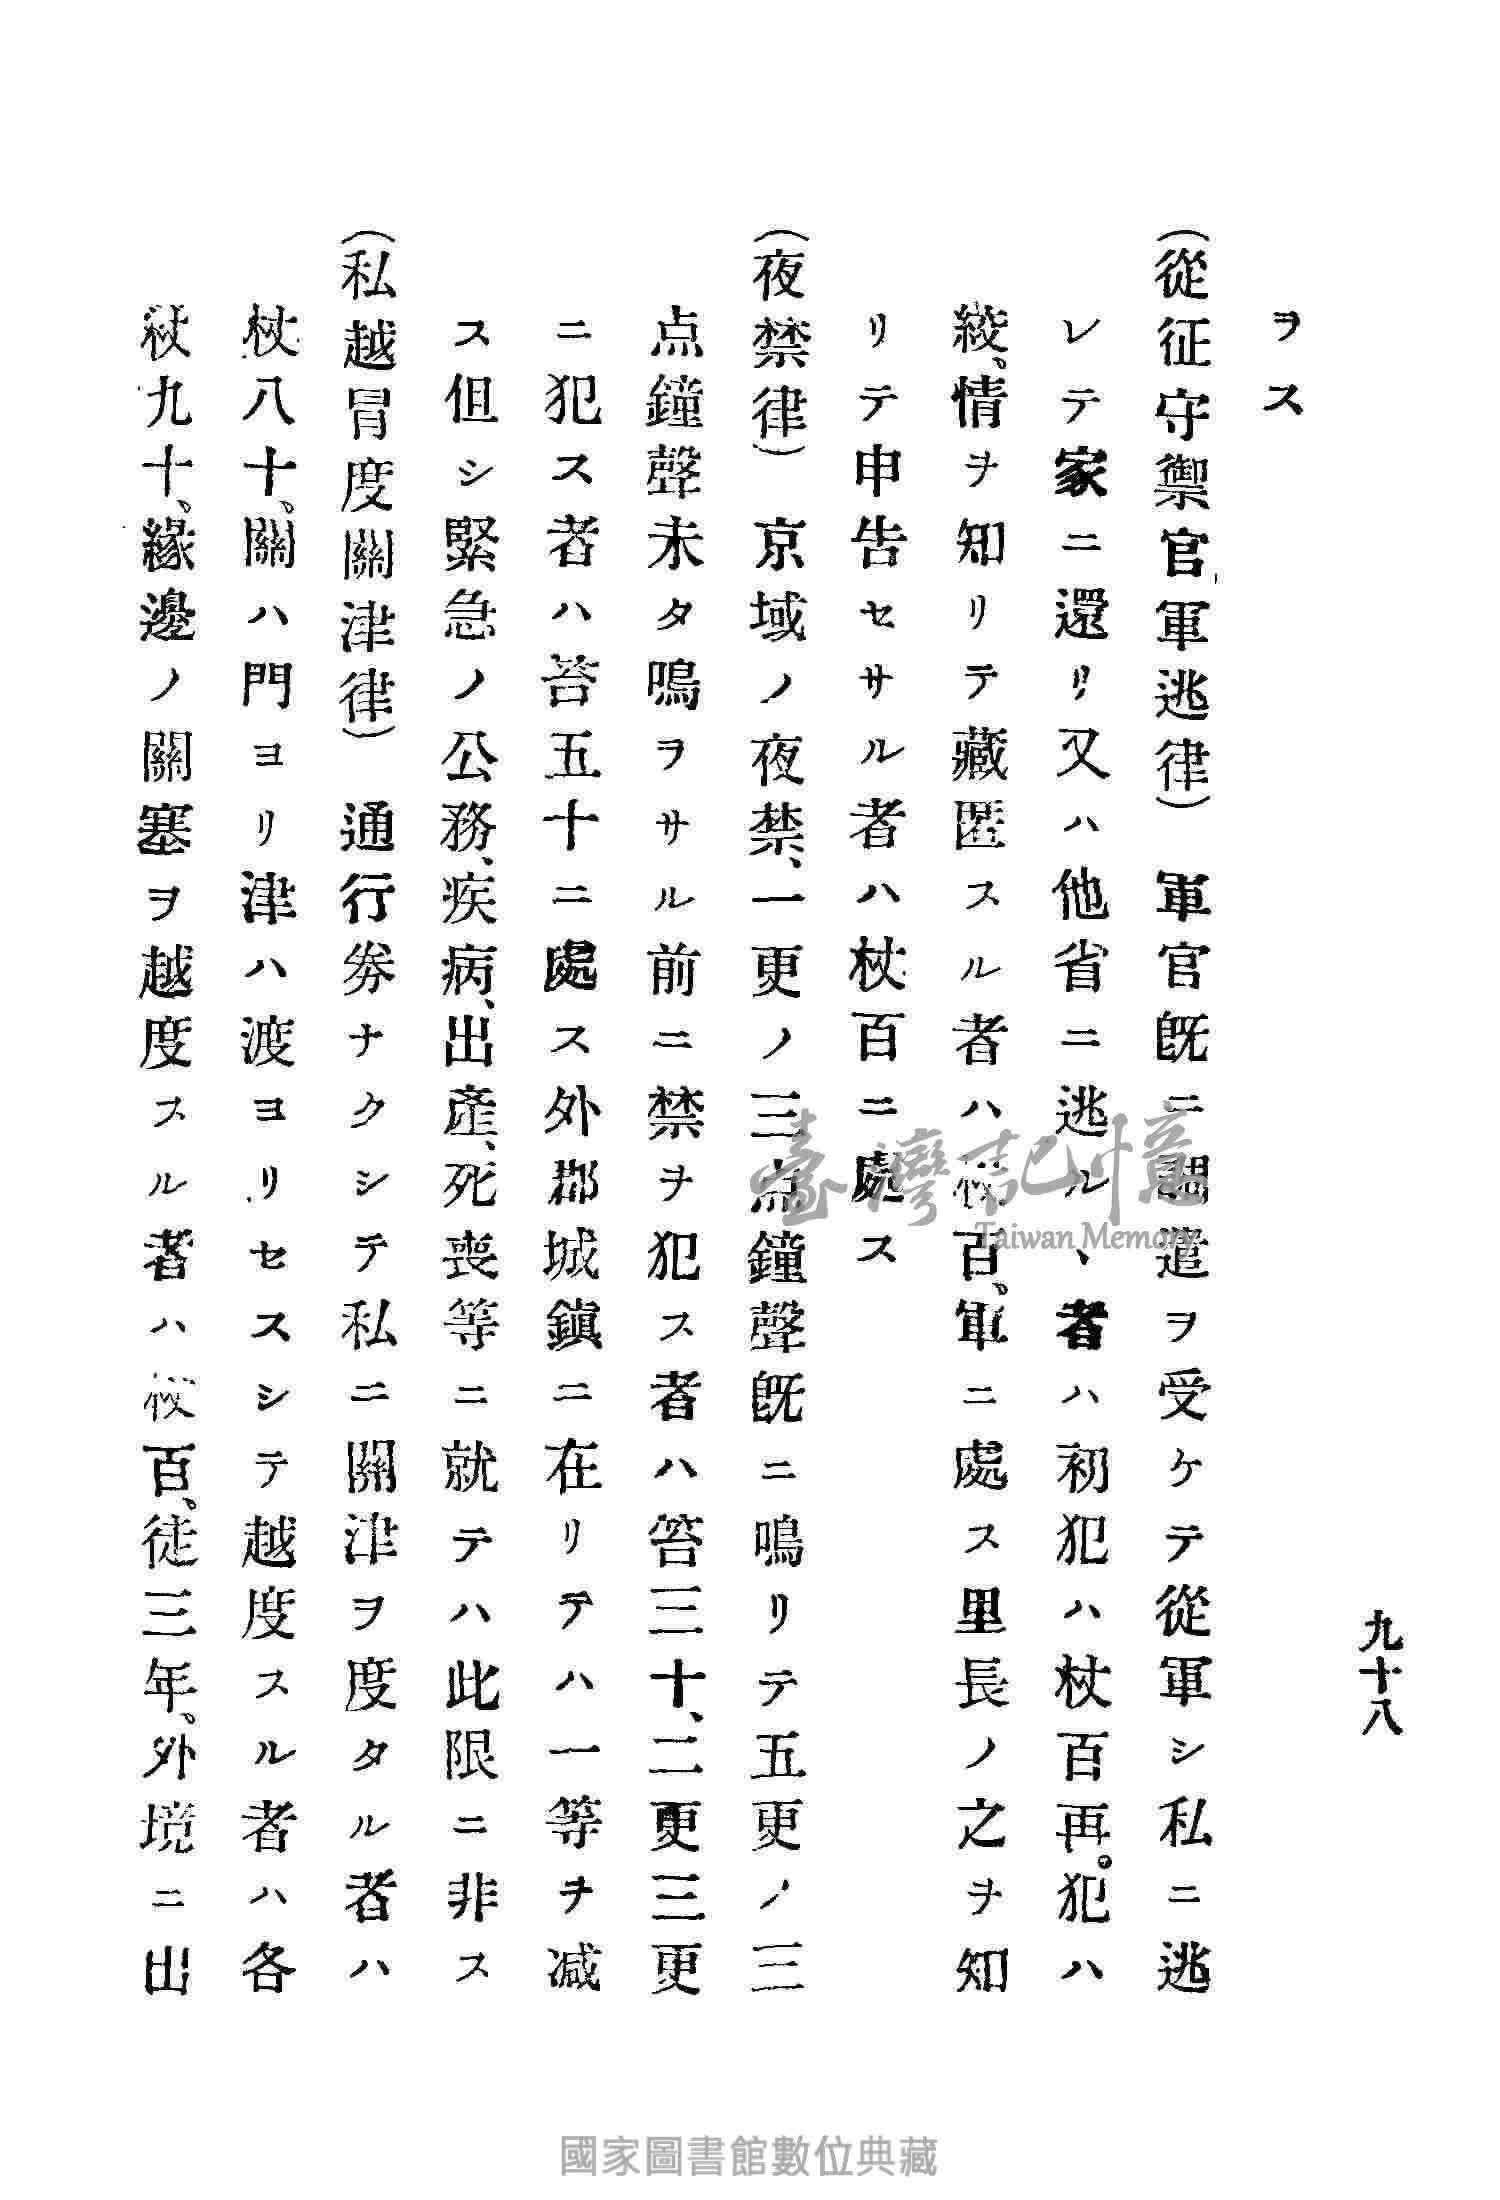 九十八
ヲス
(從征守禦官軍逃律)　軍官既ニ調遣ヲ受ケテ從軍シ私ニ逃
レテ家ニ還リ又ハ他省ニ逃ル、者ハ初犯ハ杖百再。犯ハ
綾、情ヲ知リテ藏匿スル者ハ杖百、軍ニ處ス里長ノ之ヲ知
リテ申告セサル者ハ杖百ニ處ス
(夜禁律)　京域ノ夜禁、一更ノ三点鐘聲既ニ鳴リテ五更ノ三
点鐘聲未タ鳴ヲサル前ニ禁ヲ犯ス者ハ笞三十、二更三更
ニ犯ス者ハ笞五十ニ處ス外郡城鎮ニ在リテハ一等ヲ减
ス但シ緊急ノ公務、疾病、出產、死喪等ニ就テハ此限ニ非ス
(私越冒度關津律)　通行劵ナクシテ私ニ關津ヲ度タル者ハ
杖八十、關ハ門ヨリ津ハ渡ヨリセスシテ越度スル者ハ各
杖九十、緣邊ノ關塞ヲ越度スル者ハ杖百、徒三年、外境ニ出
臺灣記憶
Taiwan Memory
國家圖書館數位典藏